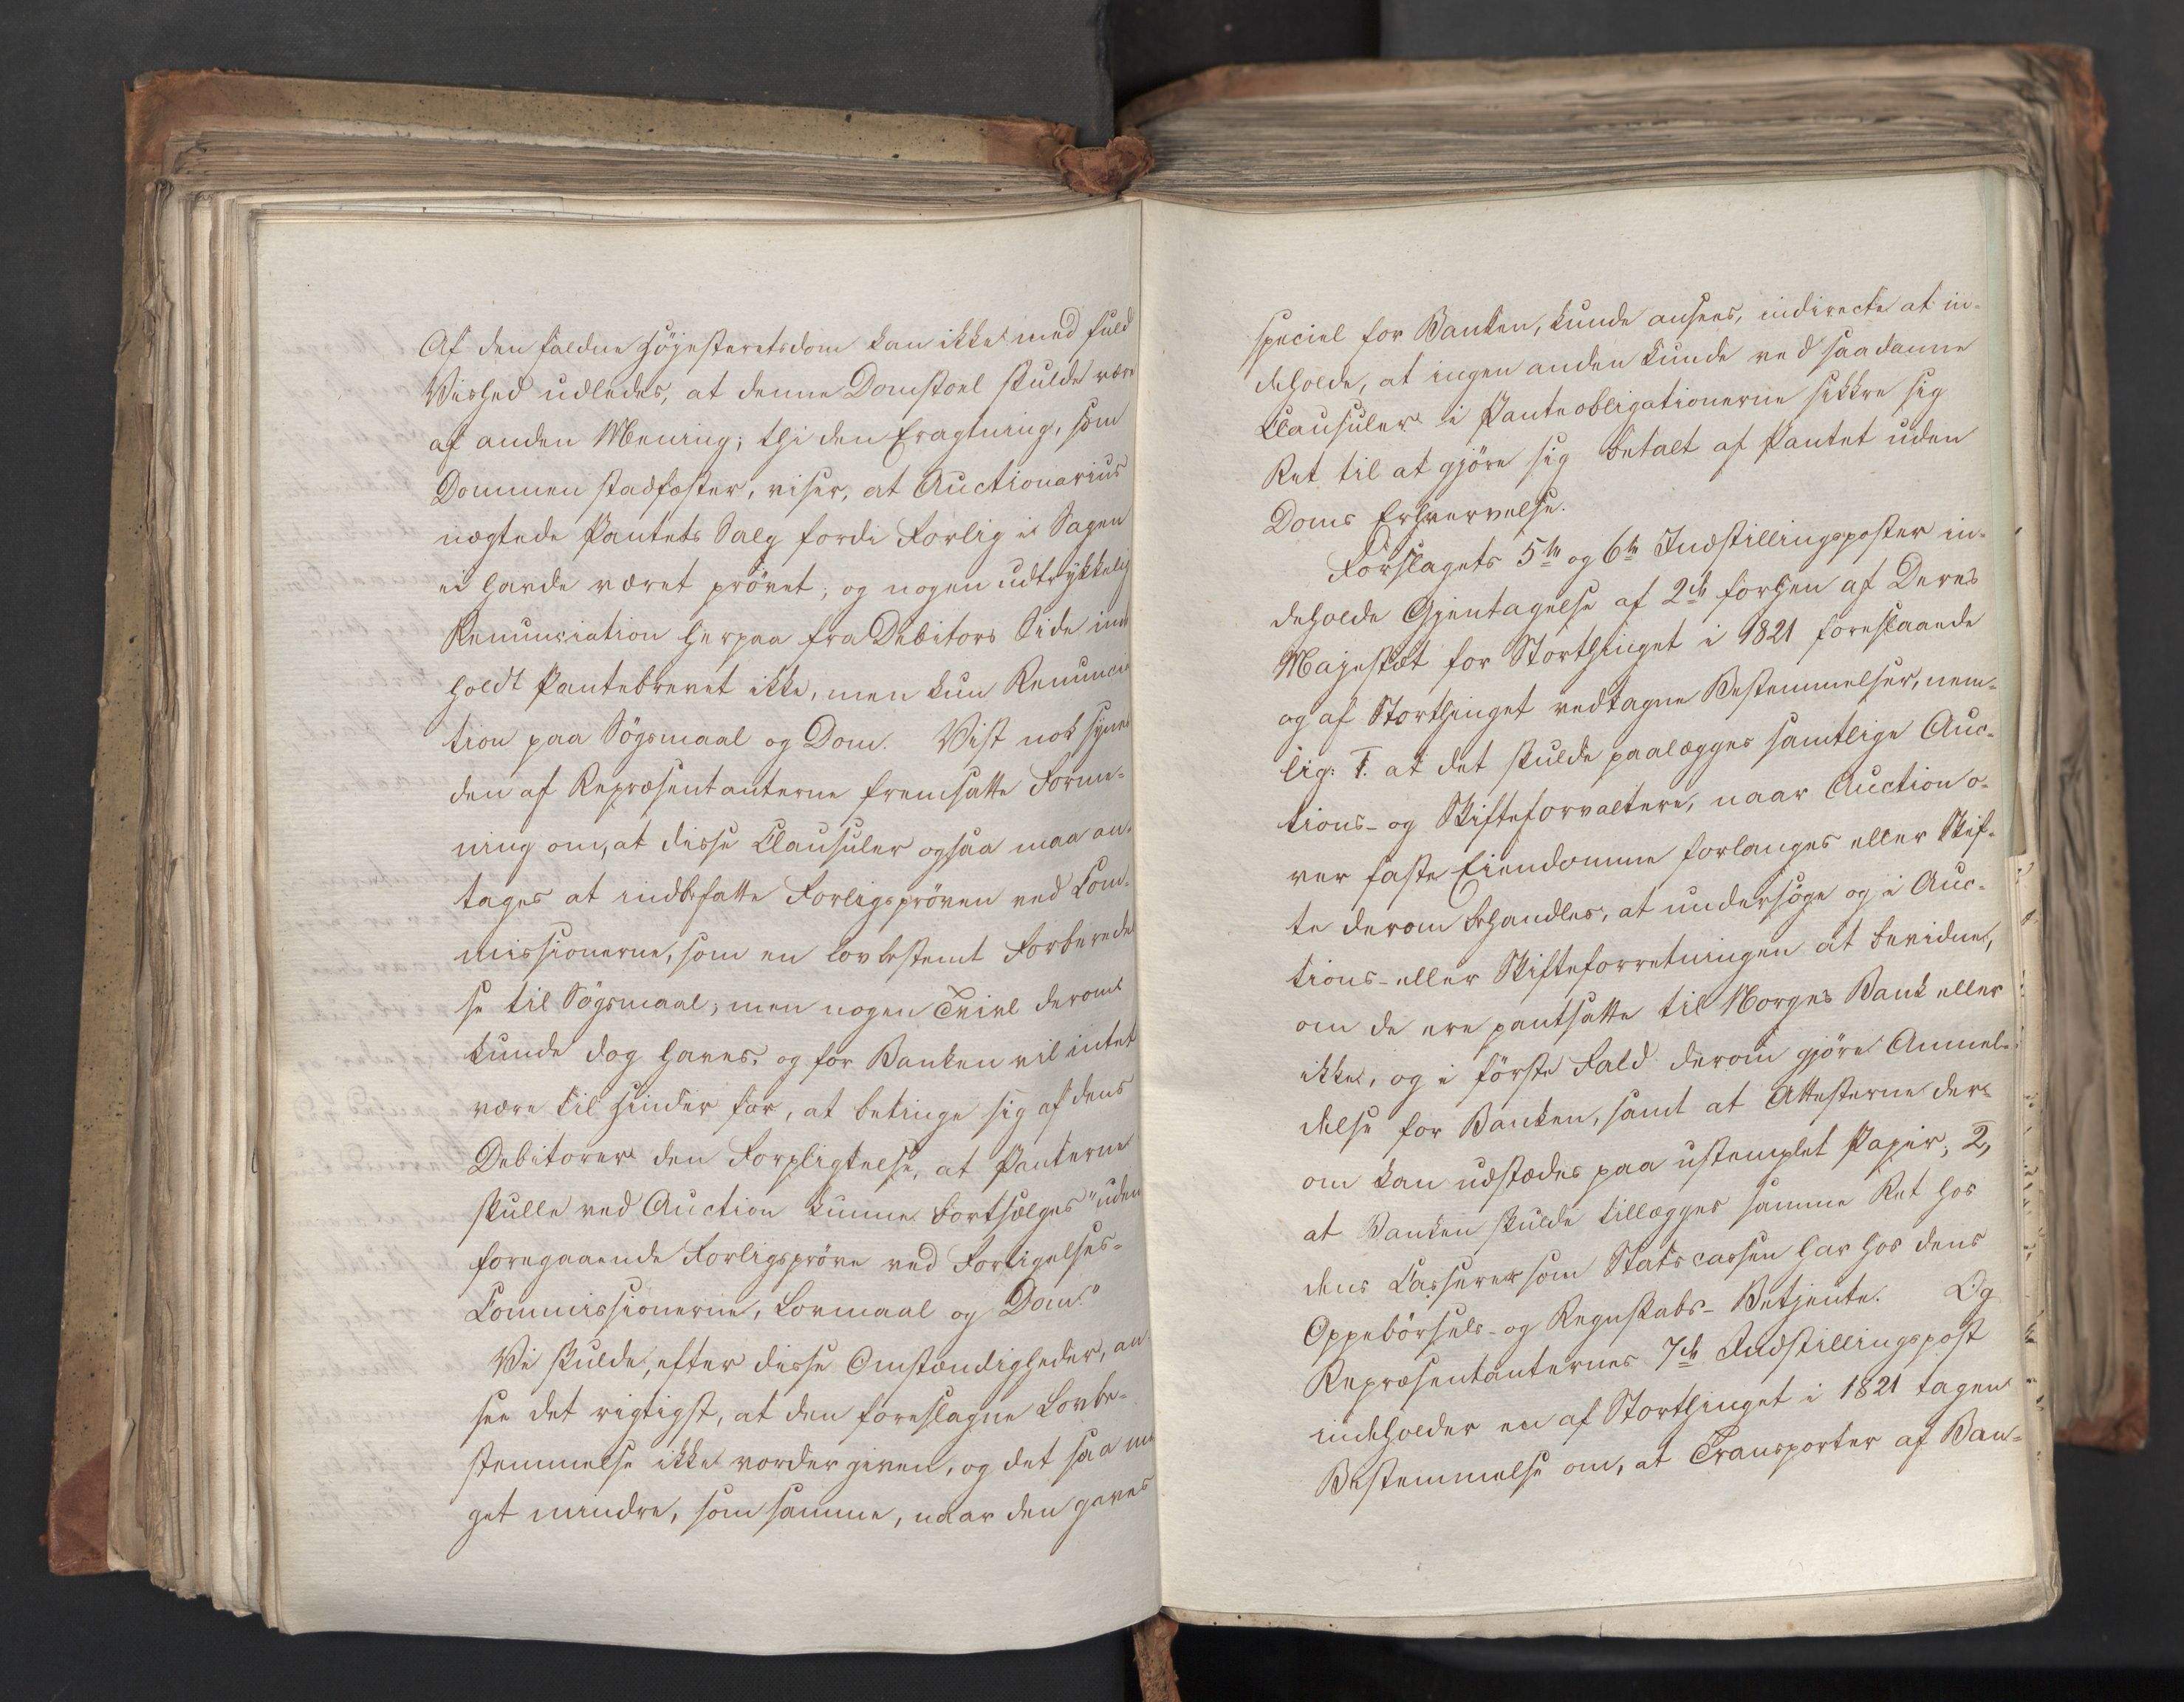 Af den faldne Höjesteretsdom kan ikke med fuld
Vished udledes, at denne Domstoel skulde være
af anden Mening; thi den Eragtning, som
Dommen stadfæster, viser, at Auctionarius
nægtede Pantets Salg fordi Forlig i Sagen
ei havde været prövet, og nogen udtrykkelig
Renunciation herpaa fra Debitors Side inde
holdt Pantebrevet ikke, men kun Renuncia
tion paa Sögsmaal og Dom. Vist nok synes
den af Repræsentanterne fremsatte Forme-
ning om, at disse Clausuler ogsaa maa an-
tages at indbefatte Forligspröven ved Com-
missionerne, som en lovbestemt Forberedel
se til Sögsmaal; men nogen Tvivl derom
kunde dog haves, og for Banken vil intet
være til Hinder for, at betinge sig af dens
Debitorer den Forpligtelse, at Panterne
skulle ved Auction kunne bortsælges "uden
foregaaende Forligspröve ved Forligelses-
Commissionerne, Lovmaal og Dom."
Vi skulde, efter disse Omstændigheder, an-
see det rigtigst, at den foreslagne Lovbe-
stemmelse ikke vorder given, og det saa me
get mindre, som samme, naar den gaves
speciel for Banken, kunde ansees, indirecte at in-
deholde, at ingen anden kunde ved saadanne
Clausuler i Panteobligationerne sikkre sig
Ret til at gjöre sig betalt af Pantet uden
Doms Erhvervelse.
Forslagets 5te og 6te Indstillingsposter in-
deholde Gjentagelse af 2de forhen af Deres
Majestæt for Storthinget i 1821 foreslaaede
og af Storthinget vedtagne Bestemmelser, nem-
lig: 1. at det skulde paalægges samtlige Auc-
tions- og Skifteforvaltere, naar Auction o-
ver faste Eiendomme forlanges eller Skif-
te derom behandles, at undersöge og i Auc-
tions- eller Skifteforretningen at bevidne,
om de ere pantsatte til Norges Bank eller
ikke, og i förste Fald derom gjöre Anmel-
delse for Banken, samt at Attesterne der-
om kan udstædes paa ustemplet Papir, 2,
at Banken skulde tillægges samme Ret hos
dens Casserer som Statscassen har hos dens
Oppebörsels- og Regnskabs-Betjente. Og
Repræsentanternes 7de Indstillingspost
indeholder en af Storthinget i 1821 tagen
Bestemmelse om, at Transporter af Ban-